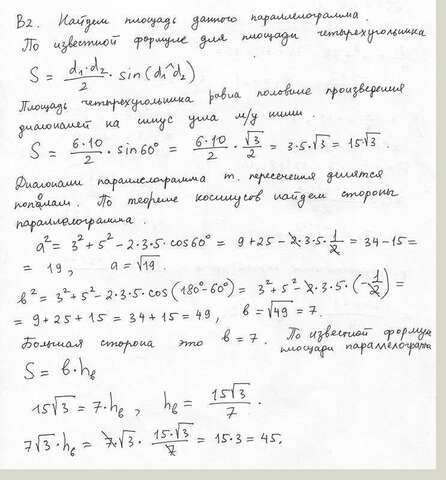 В2. Найдем площадь данного параллелограмма.
По известной формуле для площади четырехугольника
S = d₁·d₂/2 · sin(d₁^d₂)
Площадь четырехугольника равна половине произведения
диагоналей на синус угла м/у ними.
S = 6·10/2 · sin60° = 6·10/2 · √3/2 = 3·5·√3 = 15√3.
Диагонали параллелограмма т. пересечения делятся
пополам. По теореме косинусов найдем стороны
параллелограмма.
a² = 3² + 5² - 2·3·5·cos60° = 9+25 - 2·3·5·1/2 = 34-15 =
= 19, a = √19.
b² = 3² + 5² - 2·3·5·cos(180°-60°) = 3² + 5² - 2·3·5·(-1/2) =
= 9 + 25 + 15 = 34 + 15 = 49, b = √49 = 7.
Большая сторона это b = 7. По известной формуле
площади параллелограмма
S = b·h_b
15√3 = 7·h_b, h_b = 15√3/7.
7√3·h_b = 7·√3 · 15·√3/7 = 15·3 = 45.